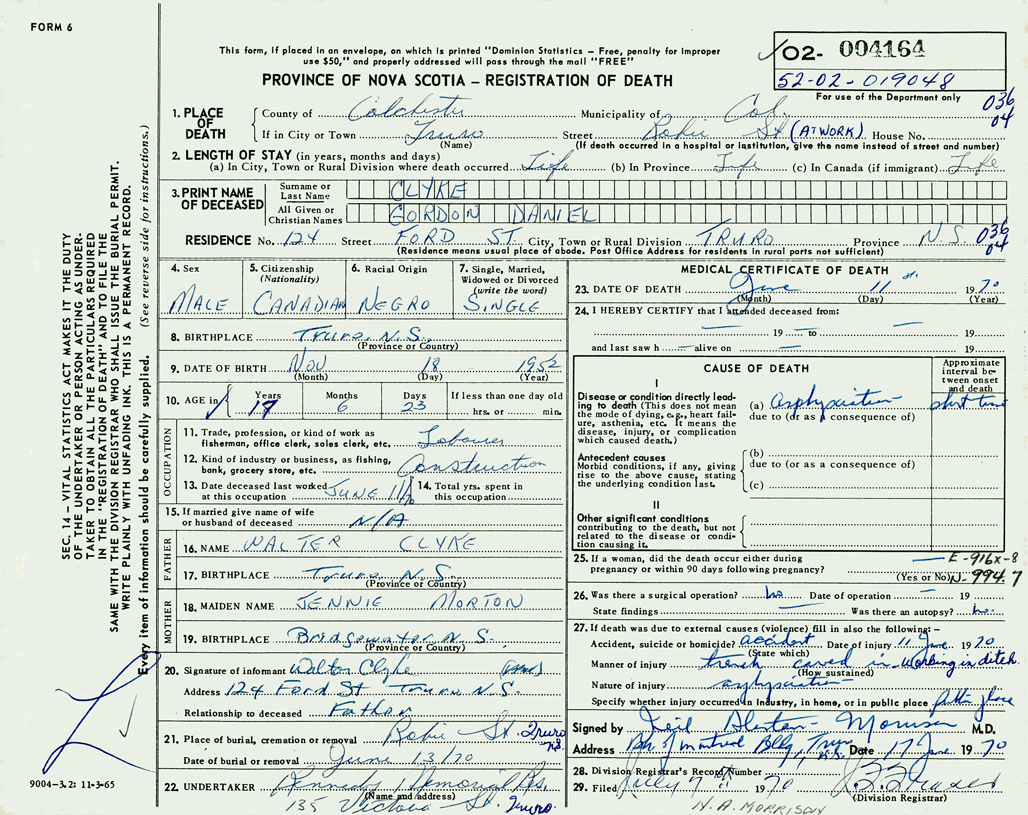 FORM 6
This form, if placed in an envelope, on which is printed "Dominion Statistics – Free, penalty for improper
use $50," and properly addressed will pass through the mail "FREE"
PROVINCE OF NOVA SCOTIA – REGISTRATION OF DEATH
02- 004164
52-02-019048
For use of the Department only
036
04
1. PLACE OF DEATH
County of Colchester Municipality of Col.
If in City or Town Truro Street Robie St (AT WORK) House No.
(Name) (If death occurred in a hospital or institution, give the name instead of street and number)
2. LENGTH OF STAY (in years, months and days)
(a) In City, Town or Rural Division where death occurred Life (b) In Province Life (c) In Canada (if immigrant) Life
3. PRINT NAME OF DECEASED
Surname or Last Name CLYKE
All Given or Christian Names GORDON DANIEL
RESIDENCE No. 124 Street FORD ST. City, Town or Rural Division TRURO Province N.S. 036
04
(Residence means usual place of abode. Post Office Address for residents in rural parts not sufficient)
SEC. 14 – VITAL STATISTICS ACT MAKES IT THE DUTY
OF THE UNDERTAKER OR PERSON ACTING AS UNDER-
TAKER TO OBTAIN ALL THE PARTICULARS REQUIRED
IN THE "REGISTRATION OF DEATH" AND TO FILE THE
SAME WITH THE DIVISION REGISTRAR WHO SHALL ISSUE THE BURIAL PERMIT.
WRITE PLAINLY WITH UNFADING INK. THIS IS A PERMANENT RECORD.
Every item of information should be carefully supplied. (See reverse side for instructions.)
4. Sex MALE
5. Citizenship (Nationality) CANADIAN
6. Racial Origin NEGRO
7. Single, Married, Widowed or Divorced (write the word) SINGLE
8. BIRTHPLACE Truro. N.S.
(Province or Country)
9. DATE OF BIRTH Nov 18 1952
(Month) (Day) (Year)
10. AGE in Years 17 Months 6 Days 23 If less than one day old
hrs. or min.
OCCUPATION
11. Trade, profession, or kind of work as
fisherman, office clerk, sales clerk, etc. Labourer
12. Kind of industry or business, as fishing,
bank, grocery store, etc. Construction
13. Date deceased last worked
at this occupation JUNE 11/70
14. Total yrs. spent in
this occupation
15. If married give name of wife
or husband of deceased N/A
FATHER
16. NAME WALTER CLYKE
17. BIRTHPLACE Truro N.S.
(Province or Country)
MOTHER
18. MAIDEN NAME JENNIE MORTON
19. BIRTHPLACE Bridgewater N.S.
(Province or Country)
20. Signature of informant Walter Clyke
Address 124 Ford St Truro N.S.
Relationship to deceased Father
21. Place of burial, cremation or removal Robie St. Truro NS.
Date of burial or removal June 13/70
22. UNDERTAKER Kennedy Memorial
(Name and address)
135 Victoria St. Truro.
9004–3.2: 11-3-65
MEDICAL CERTIFICATE OF DEATH
23. DATE OF DEATH June 11 1970
(Month) (Day) (Year)
24. I HEREBY CERTIFY that I attended deceased from:
— 19 — to — 19
and last saw h — alive on — 19
CAUSE OF DEATH
Approximate interval between onset and death
I
Disease or condition directly lead-
ing to death (This does not mean
the mode of dying, e.g., heart fail-
ure, asthenia, etc. It means the
disease, injury, or complication
which caused death.)
(a) Asphyxiation short time
due to (or as a consequence of)
Antecedent causes
Morbid conditions, if any, giving
rise to the above cause, stating
the underlying condition last.
(b)
due to (or as a consequence of)
(c)
II
Other significant conditions
contributing to the death, but not
related to the disease or condi-
tion causing it.
25. If a woman, did the death occur either during
pregnancy or within 90 days following pregnancy? —
(Yes or No)
E-916X-8
N-994.7
26. Was there a surgical operation? no Date of operation — 19
State findings — Was there an autopsy? no.
27. If death was due to external causes (violence) fill in also the following:–
Accident, suicide or homicide? accident Date of injury 11 June. 1970
(State which)
Manner of injury trench caved in. working in ditch.
(How sustained)
Nature of injury asphyxiation
Specify whether injury occurred in industry, in home, or in public place public place
Signed by Morrison M.D.
Address Bk of Montreal Bldg, Truro, N.S. Date 17 June. 1970
28. Division Registrar's Record Number
29. Filed July 7th 1970
(Division Registrar)
N.A. MORRISON